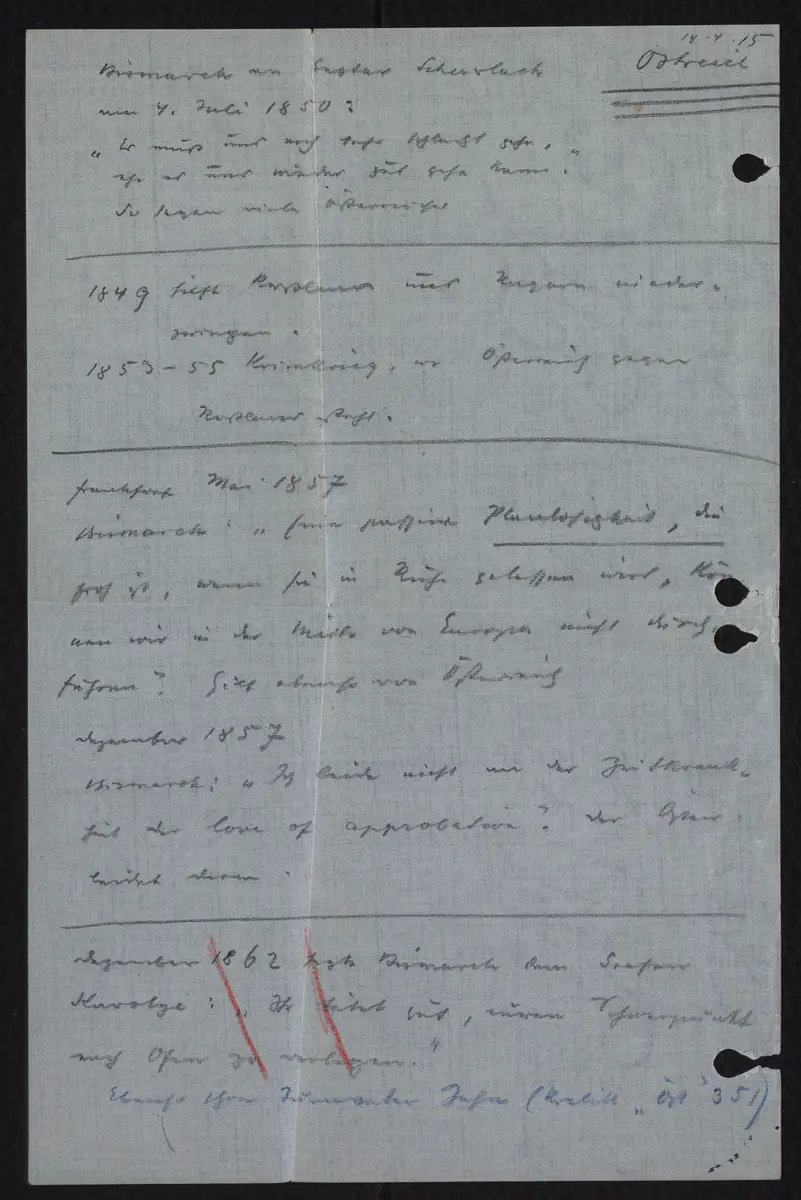 18.4.15
Östreich
Bismarck an Gustav Scherlach
am 4. Juli 1850:
„Es muß uns noch sehr schlecht gehn,
ehe es uns wieder gut gehn kann."
So sagen viele Österreicher
1849 hilft Russland uns Ungarn nieder-
zwingen.
1853–55 Krimkrieg, wo Österreich gegen
Russland steht.
Frankfurt Mai 1857
Bismarck: „Eine passive Planlosigkeit, die
froh ist, wenn sie in Ruhe gelassen wird, kön-
nen wir in der Mitte von Europa nicht durch-
führen". Gilt ebenso von Österreich
Dezember 1857
Bismarck: „Ich leide nicht an der Zeitkrank-
heit der love of approbation". Der Österr.
leidet daran.
Dezember 1862 sagte Bismarck dem Grafen
Karolyi: „Ihr tätet gut, euren Schwerpunkt
nach Ofen zu verlegen."
Ebenso schon Turnvater Jahn (Kralik „Öst" 351)